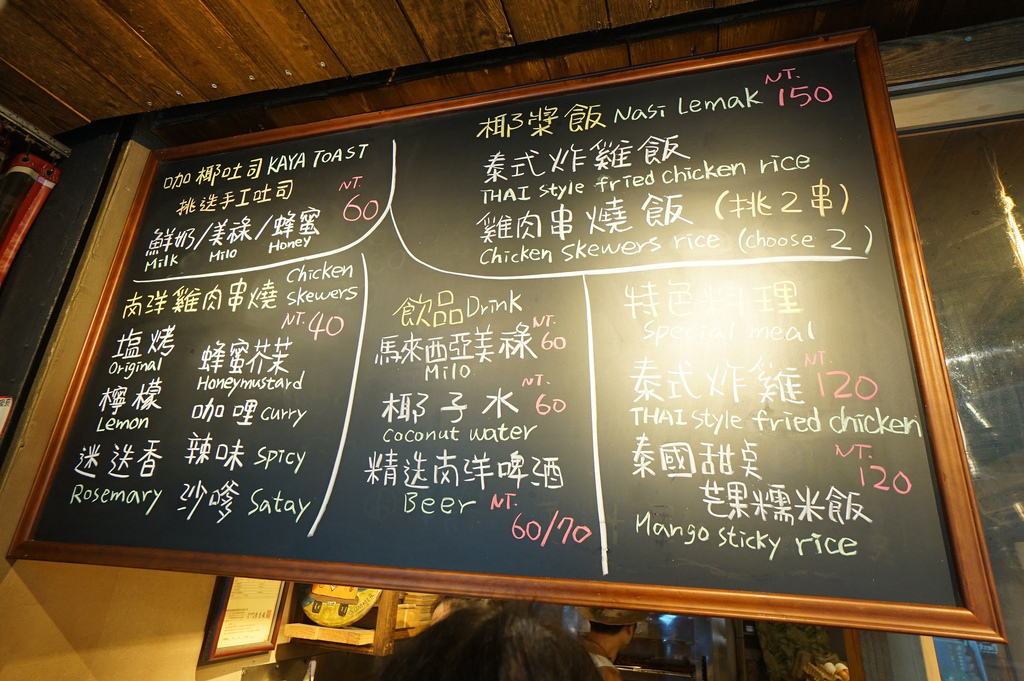 咖椰吐司 KAYA TOAST
挑选手工吐司
NT. 60
鮮奶/美祿/蜂蜜
Milk Milo Honey
椰漿飯 Nasi Lemak NT. 150
泰式炸雞飯
THAI style fried chicken rice
雞肉串燒飯 (挑2串)
Chicken skewers rice (choose 2)
南洋雞肉串燒 Chicken skewers
NT. 40
塩烤
Original
蜂蜜芥茉
Honeymustard
檸檬
Lemon
咖哩 curry
迷迭香
Rosemary
辣味 spicy
沙嗲 Satay
飲品 Drink
馬來西亞美祿 NT. 60
Milo
椰子水 NT. 60
coconut water
精选南洋啤酒
Beer NT. 60/70
特色料理
special meal
泰式炸雞 NT. 120
THAI style fried chicken
泰國甜桌 NT. 120
芒果糯米飯
Mango sticky rice